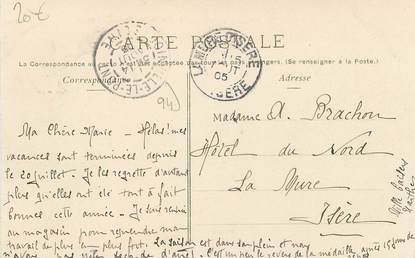 20€
CARTE POSTALE
La Correspondance au
acceptée
(Se renseigner à la Poste.)
Correspondance
Adresse
LA MURE ISÈRE
05
94
Madame A. Brachon
Hôtel du Nord
La Mure
Isère
Ma Chère Marie - Hélas! mes
vacances sont terminées depuis
le 20 juillet. Je les regrette d'autant
plus qu'elles ont été tout à fait
bonnes cette année - Je suis
au magasin pour reprendre mon
travail de plus en plus fort. La saison est dans son plein et nous
n'avons pas
C'est un peu le revers de la médaille après 15 jours de